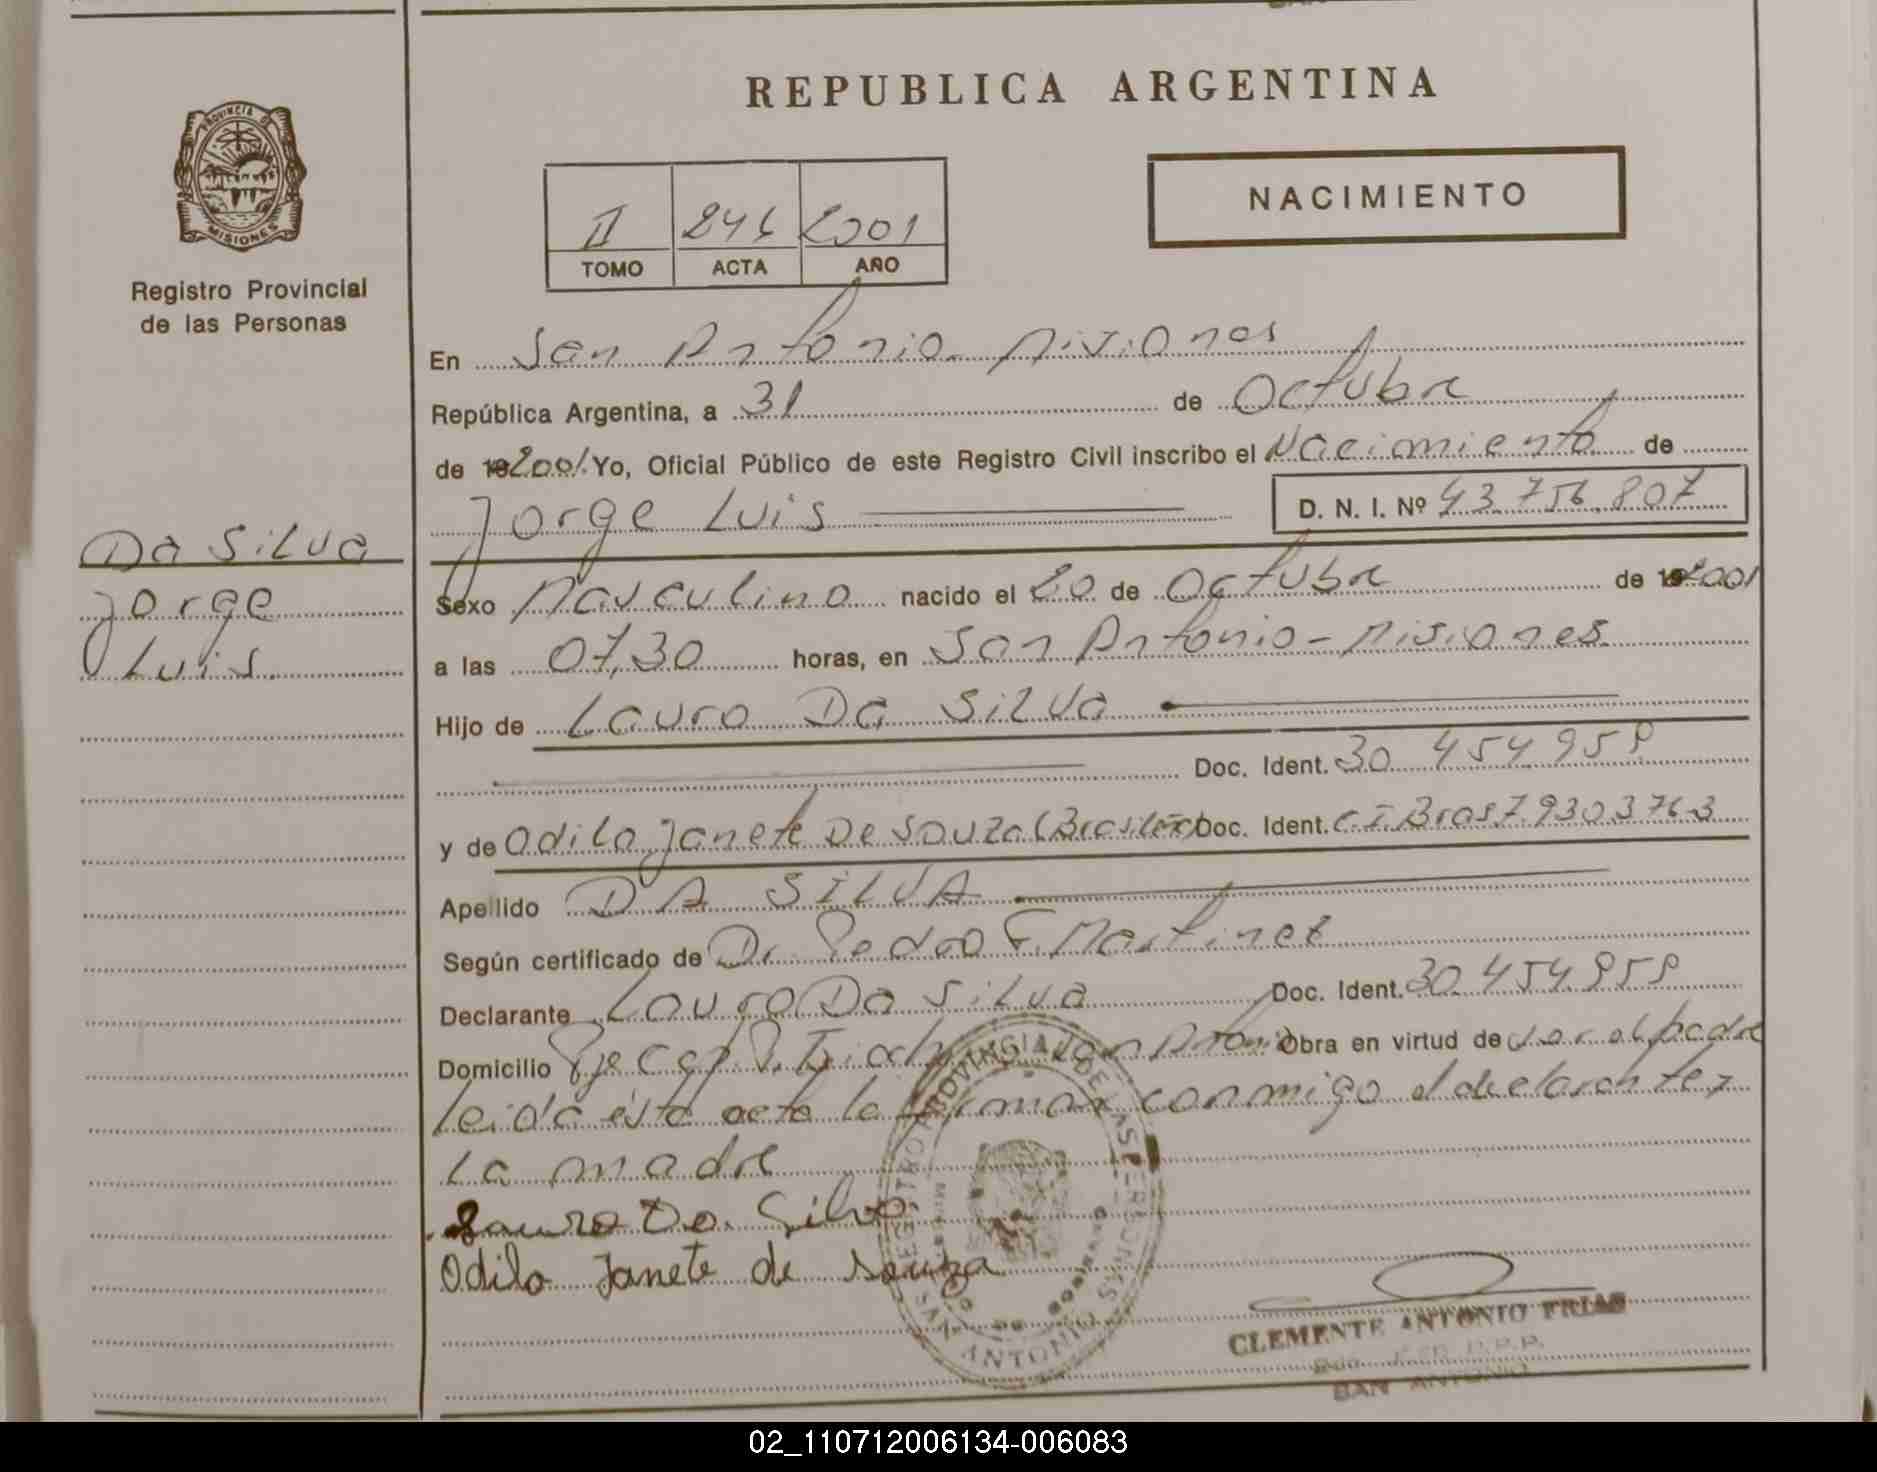 REPUBLICA ARGENTINA
PROVINCIA DE
MISIONES
Registro Provincial
de las Personas
II 246 2001
TOMO ACTA AÑO
NACIMIENTO
En San Antonio Misiones
República Argentina, a 31 de Octubre
de 19 2001 Yo, Oficial Público de este Registro Civil inscribo el Nacimiento de
Jorge Luis
D. N. I. Nº 43.756.807
Da Silva
Jorge
Luis.
Sexo Masculino nacido el 20 de Octubre de 19 2001
a las 07,30 horas, en San Antonio - Misiones
Hijo de Lauro Da Silva
Doc. Ident. 30 454 959
y de Odila Janete De Souza (Brasileña) Doc. Ident. C.I. Bras 7.930 376-3
Apellido DA SILVA
Según certificado de Dr. Pedro F. Martinez
Declarante Lauro Da Silva Doc. Ident. 30 454 959
Domicilio San Antonio Obra en virtud de ser el padre
leida ésta acta la firman conmigo el declarante y
La madre
Lauro Da Silva
Odila Janete de Souza
REGISTRO PROVINCIAL DE LAS PERSONAS
SAN ANTONIO
CLEMENTE ANTONIO FRIAS
SAN ANTONIO
02_110712006134-006083